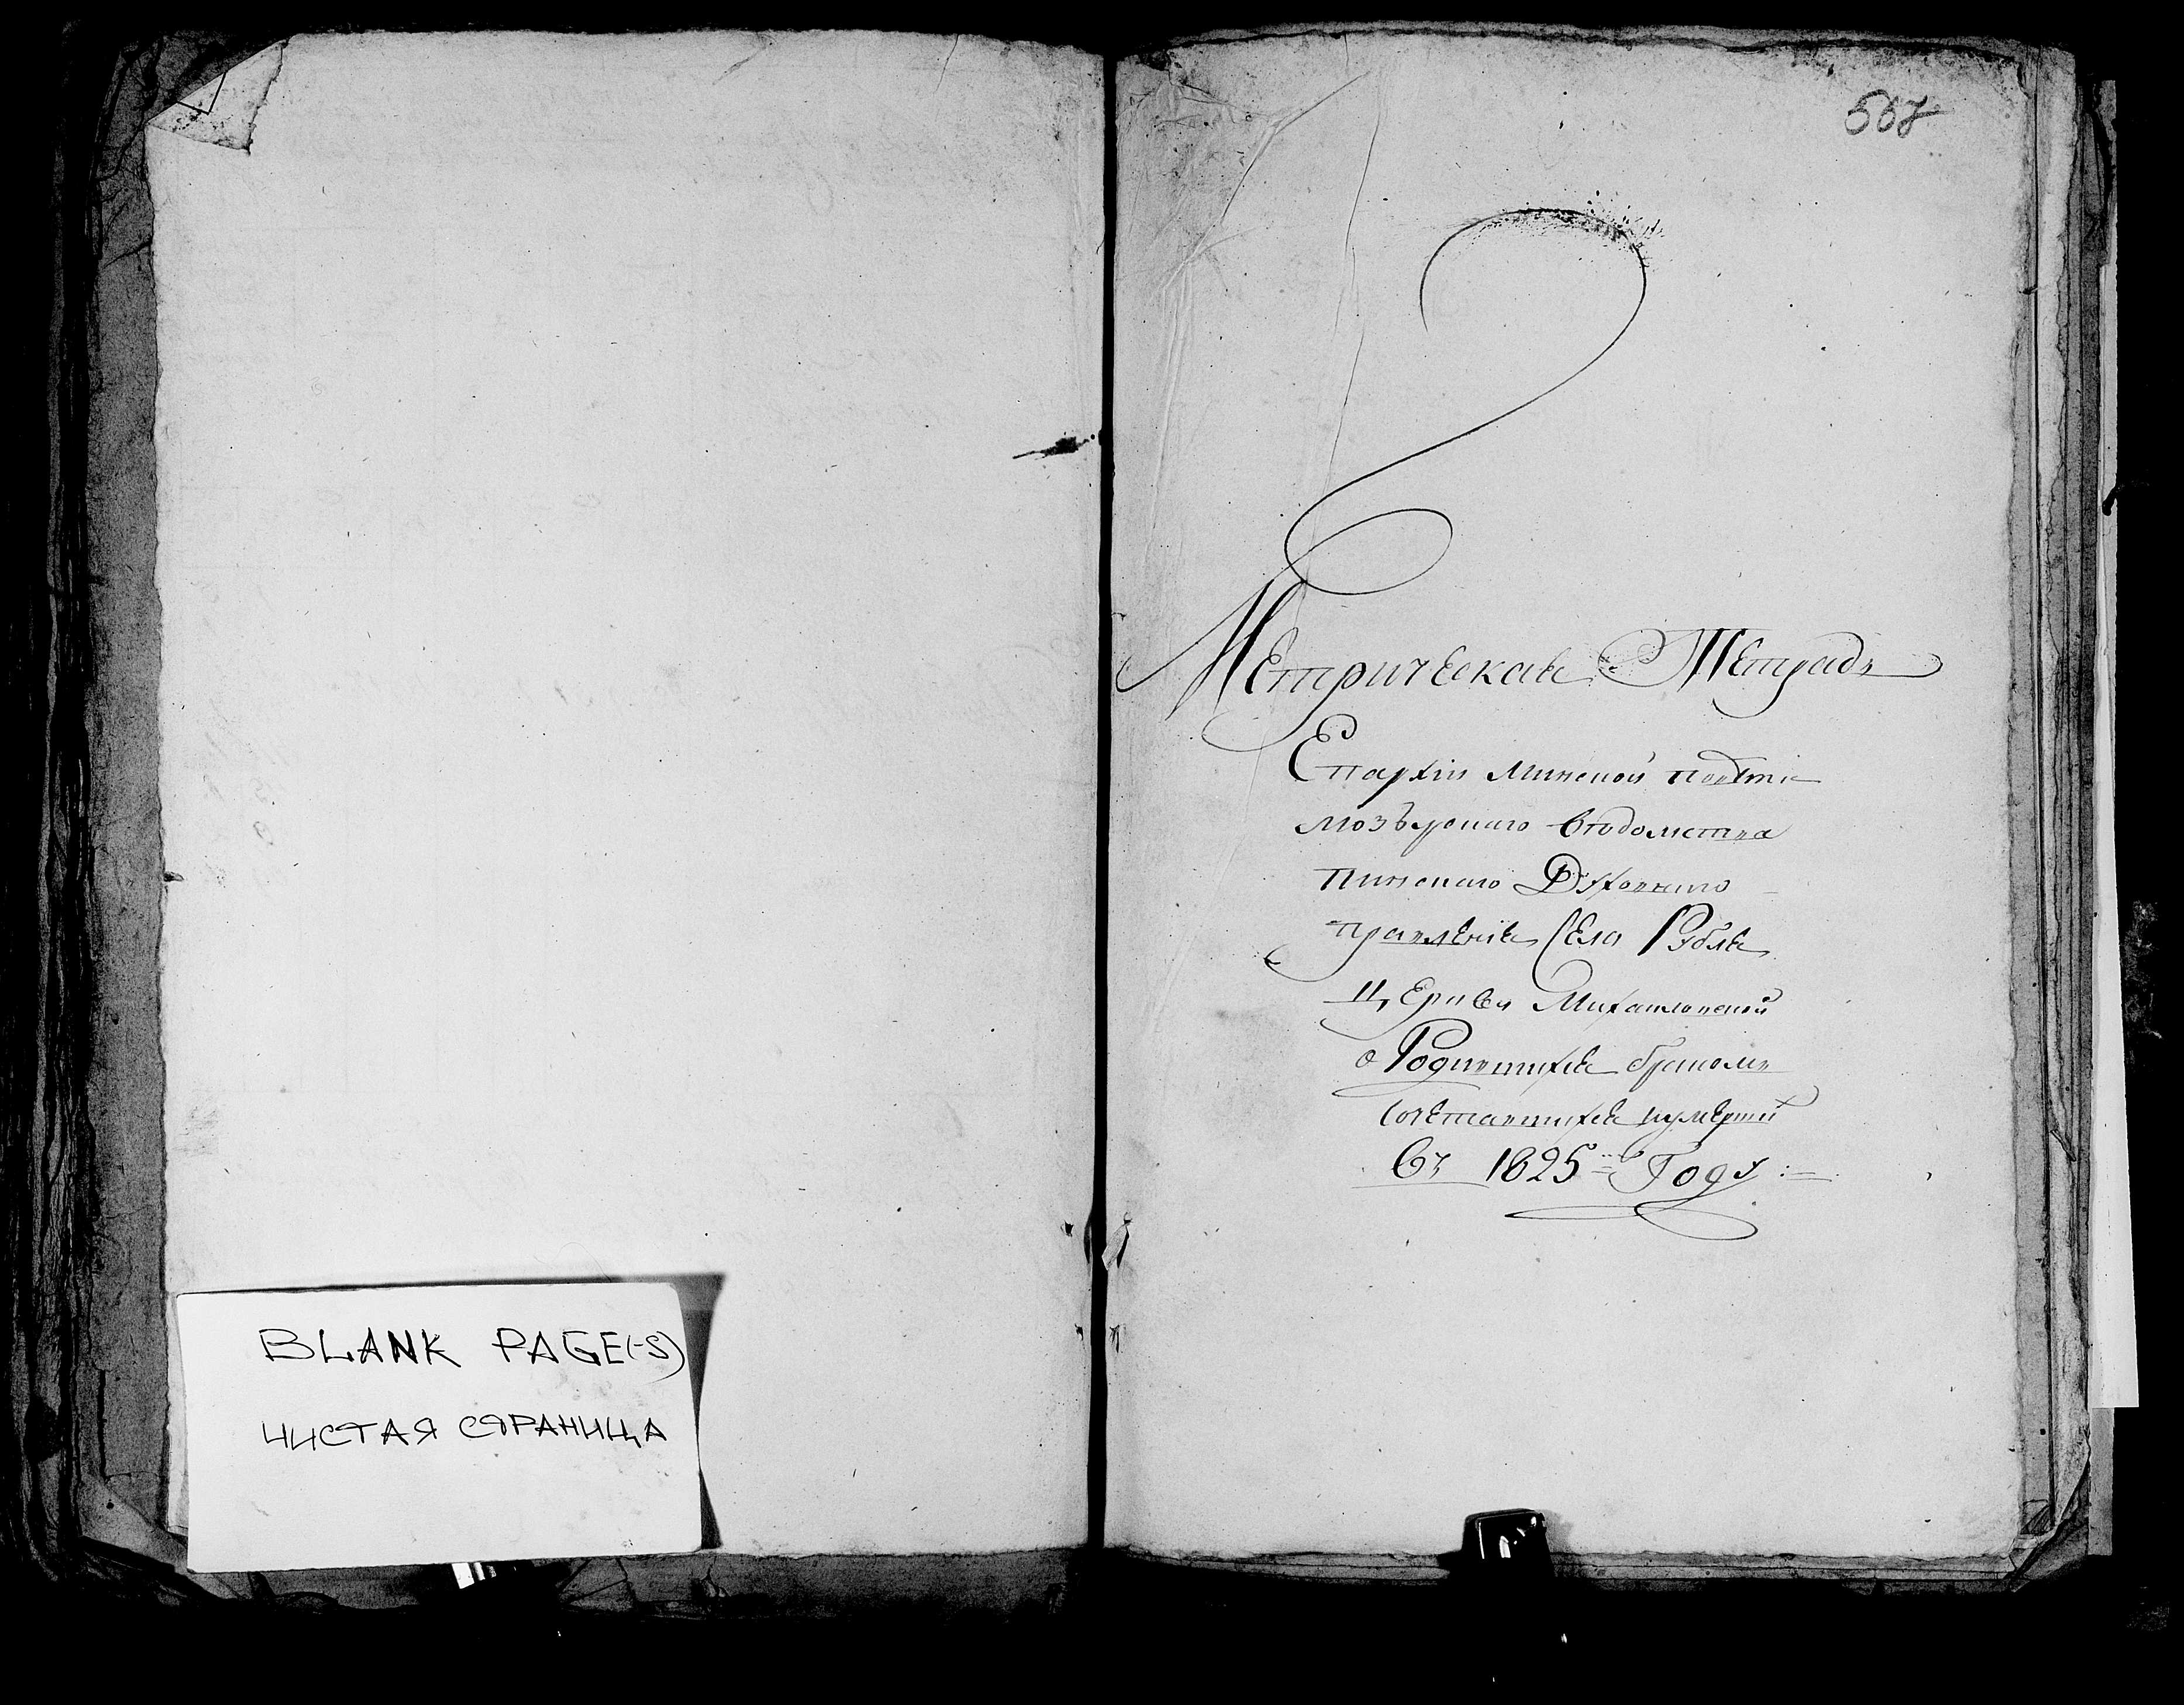 BLANK PAGE(-S)
ЧИСТАЯ СТРАНИЦА
567
Метрическая Тетрадь
Епархіи Минской повѣта
Мозырскаго вѣдомства
Пинскаго Духовнаго
правленія Села Рубля
Церкви Михайловской
о Родившихся бракомъ
Сочетавшихся иумерши
Въ 1825 Году :